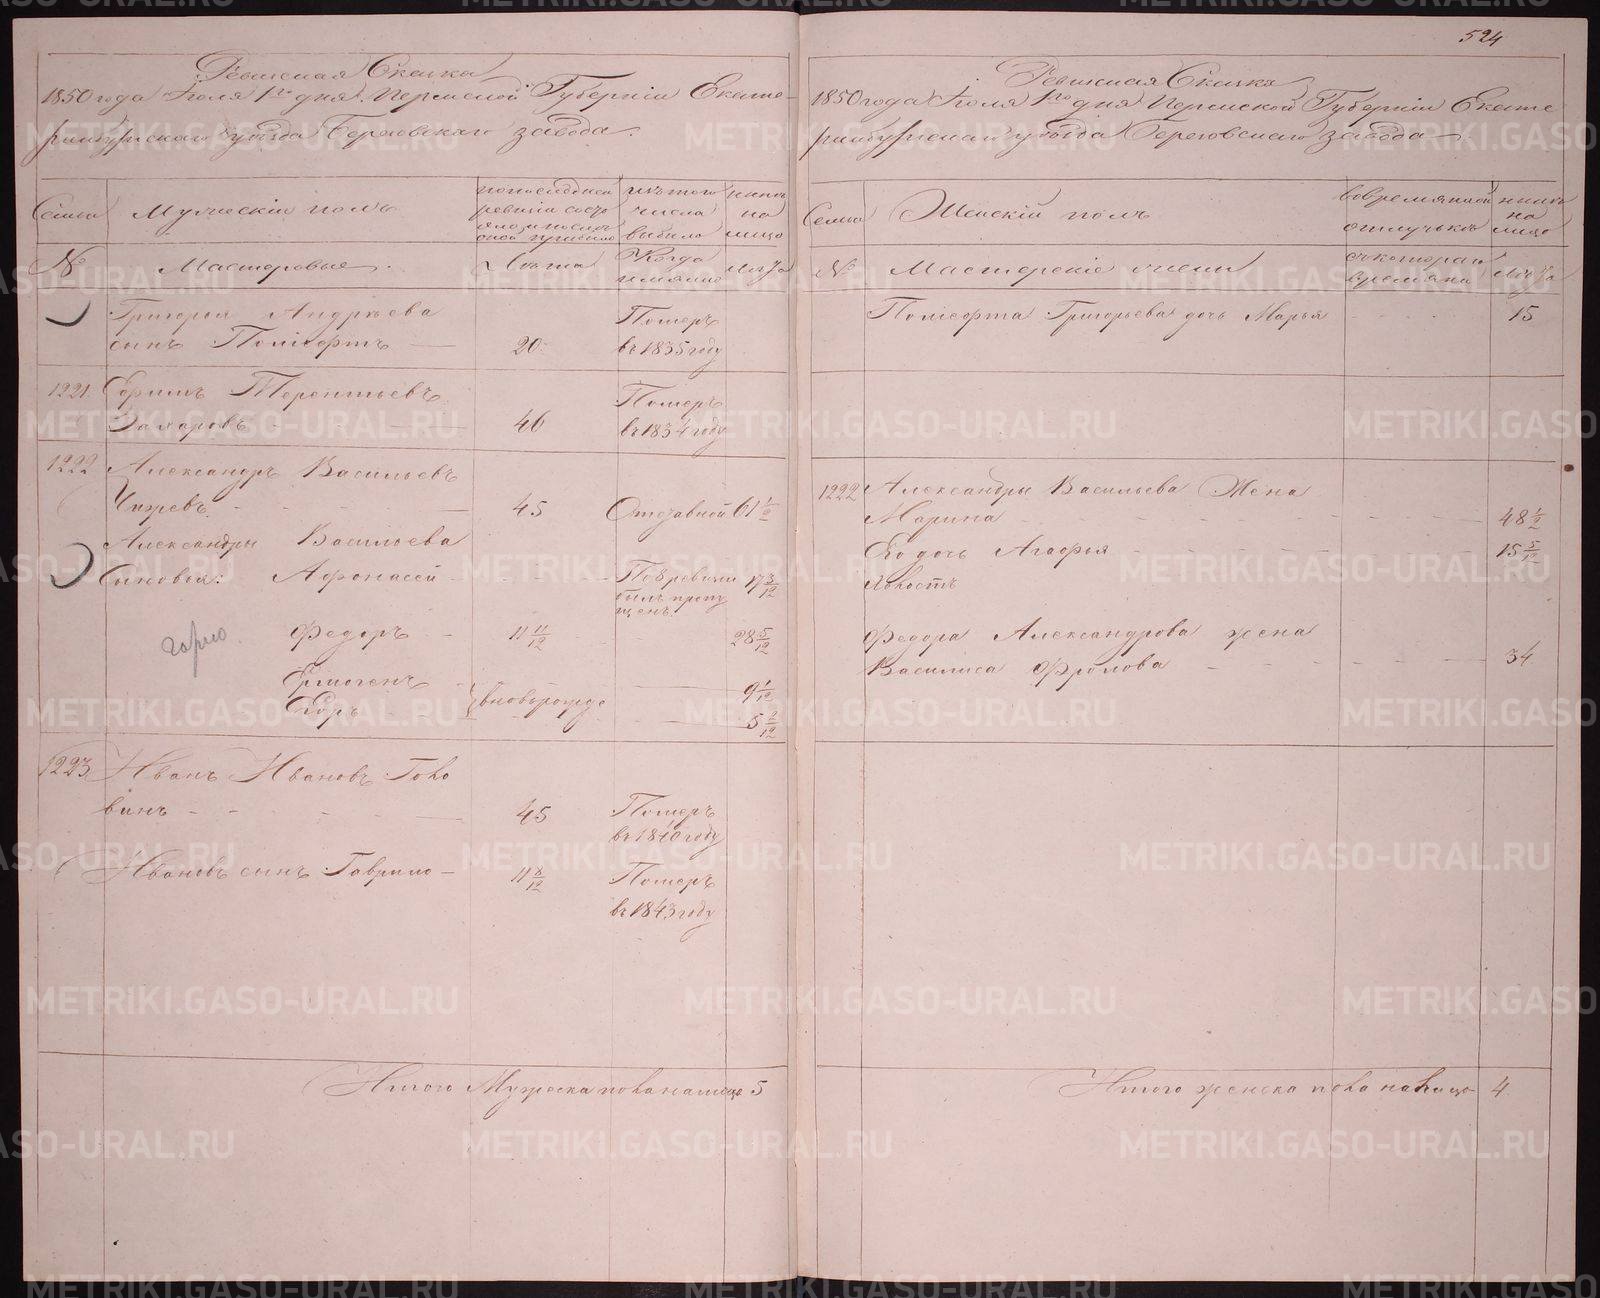 Ревизская Сказка
1850 года Іюля 1го дня Пермской Губерніи Екате-
ринбургскаго уезда Березовскаго завода.
Семьи
Мужескій полъ
по последней
ревизіи состо
яло и после
оной прибыло
изъ того
числа
выбыло
ныне
на
лицо
№
Мастеровые.
Лѣта
Когда
имянно
Лета
Григорья Андреева
сынъ Полиефтъ
20
Померъ
въ 1835 году
1221
Ефимъ Терентьевъ
Захаровъ
46
Померъ
въ 1834 году
1222
Александръ Васильевъ
Чижевъ
45
Отставной
61 1/2
Александры Васильева
Сыновья: Афонасей
По ревизіи
былъ пропу
щенъ
17 3/12
горно
Федоръ
11 11/12
28 5/12
Ермогенъ
вновьрожде
9 1/12
Егоръ
5 2/12
1223
Иванъ Ивановъ Голо
винъ
45
Померъ
въ 1840 году
Ивановъ сынъ Гаврило
11 8/12
Померъ
въ 1843 году
Итого Мужеска пола налицо 5
524
Ревизская Сказка
1850 года Іюля 1го дня Пермской Губерніи Екате
ринбургскаго уезда Березовскаго завода
Семьи
Женскій полъ
во временной
отлучке
ныне
на
лицо
№
Мастерскіе жены
съ котораго
времяни
Лета
Полиефта Григорьева дочь Марья
15
1222
Александры Васильева Жена
Марина
48 1/2
Ево дочь Агафья
15 5/12
Федора Александрова жена
Василиса Фролова
34
Итого женска пола налицо 4
METRIKI.GASO-URAL.RU